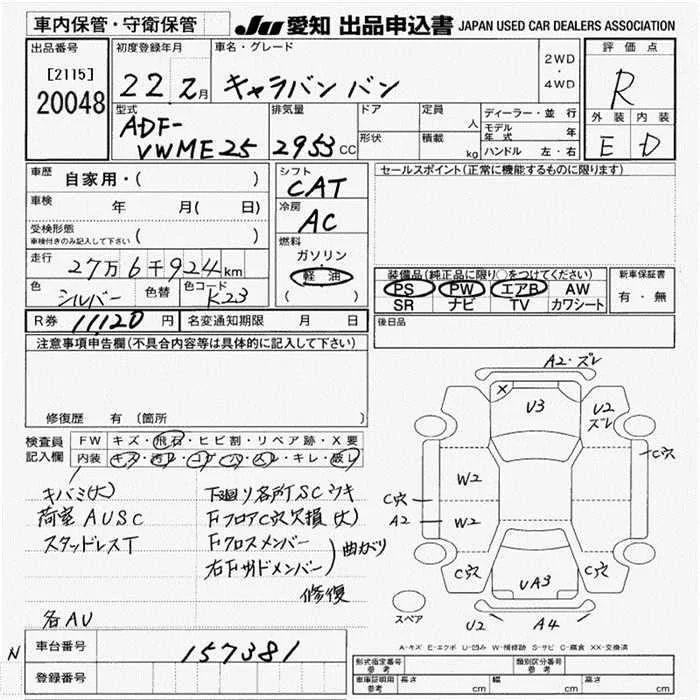 車内保管・守衛保管
JU 愛知 出品申込書 JAPAN USED CAR DEALERS ASSOCIATION
出品番号
[2115]
20048
初度登録年月
22 2月
車名・グレード
キャラバン バン
2WD
・
4WD
評価点
R
外装 内装
E D
型式
ADF-
VWME25
排気量
2953 CC
ドア
形状
定員
人
積載
kg
ディーラー・並行
モデル年式 年
ハンドル 左・右
車歴
自家用・( )
車検 年 月(日)
受検形態
車検付きのみ記入して下さい ( )
走行
27万6千924km
色 シルバー 色替 色コード K23
シフト
CAT
冷房
AC
燃料
ガソリン
軽油
( )
セールスポイント(正常に機能するものに限ります)
装備品(純正品に限り○をつけてください)
PS PW エアB AW
SR ナビ TV カワシート
新車保証書
有・無
後日品
R券 11120 円 名変通知期限 月 日
注意事項申告欄(不具合内容等は具体的に記入して下さい)
修復歴 有 (箇所 )
検査員
記入欄
FW キズ・飛石・ヒビ割・リペア跡・X要
内装 キズ・汚レ・コゲ・穴・ムレ・キレ・破レ
キバミ(大)
荷室AUSC
スタッドレスT
各AU
下廻り各所SCサキ
Fフロア C穴欠損(大)
Fクロスメンバー
右Fサイドメンバー
曲がり
修復
A2・ズレ
X
U3
U2
ズレ
C穴
W2
C穴
A2
W2
C穴
UA3
C穴
スペア
U2
A4
A-キズ E-エクボ U-凹み W-補修跡 S-サビ C-腐食 XX-交換済
N
車台番号 157381
登録番号
型式指定番号
参考
類別区分番号
参考
車庫証明用
参考
長さ cm 幅 cm 高さ cm